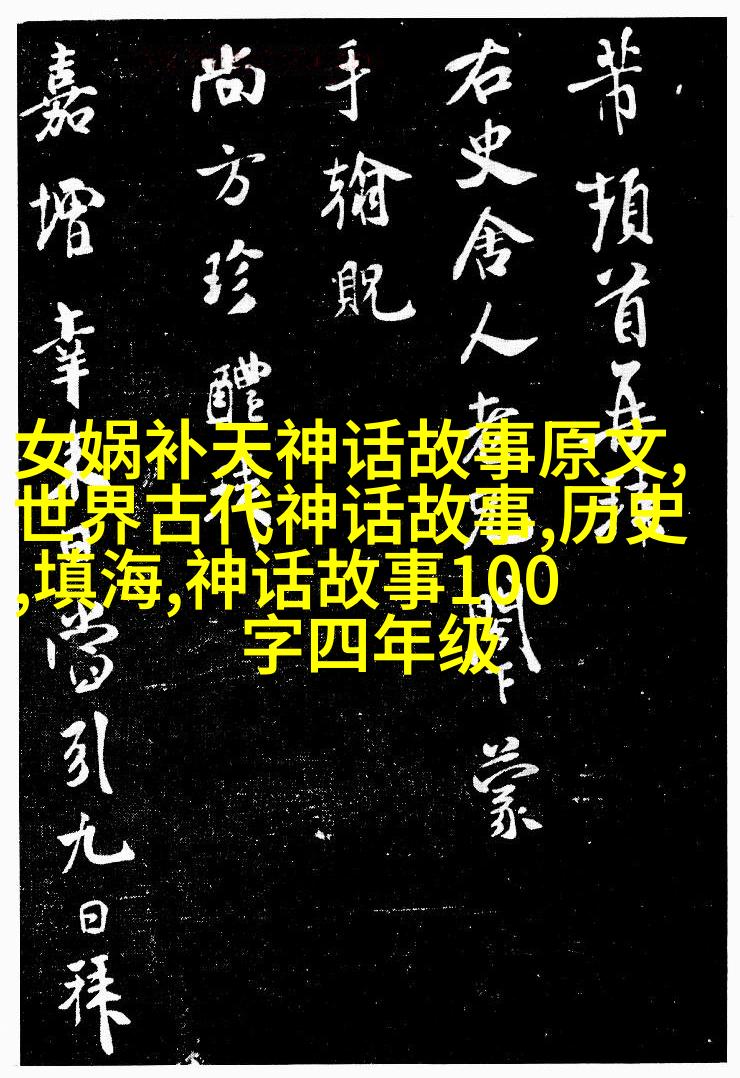 芾頓首再
右史舍人老下蒙
手翰貺
尚方珍醴
嘉增幸來當引九日拜
女娲补天神话故事原文,
世界古代神话故事,历史
,填海,神话故事100
字四年级